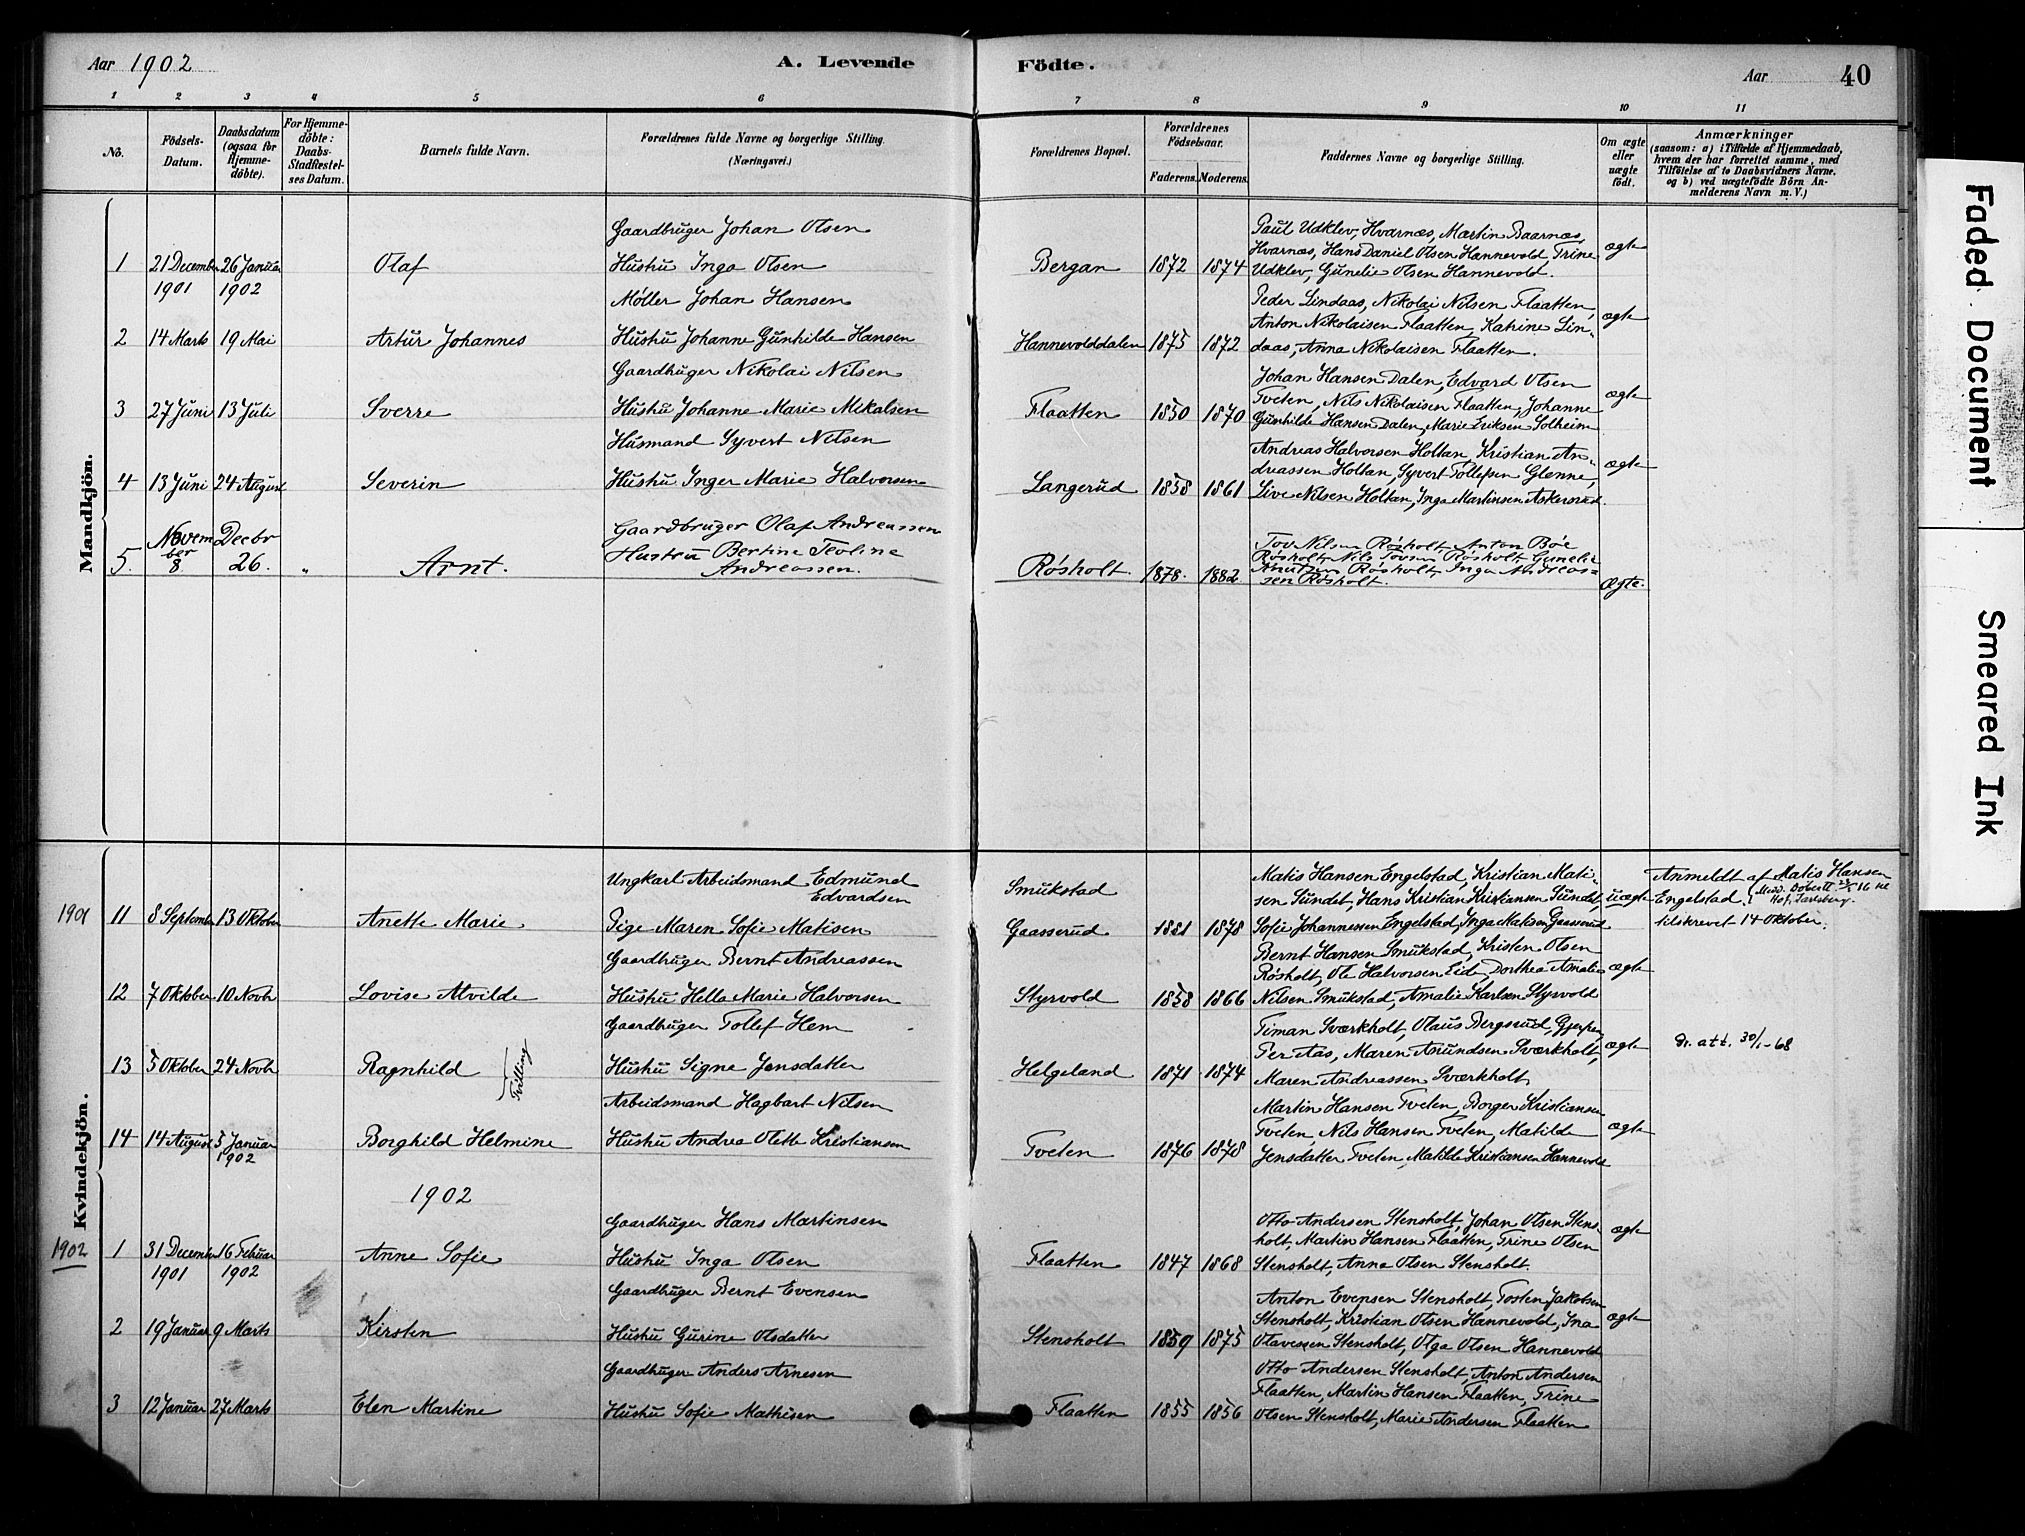 Aar 1902
A. Levende
Födte.
Aar
40
1 2 3 4 5 6 7 8 9 10 11
Nô. Födsels-Datum. Daabsdatum (ogsaa for Hjemme-döbte). For Hjemme-döbte: Daabs-Stadfæstel-ses Datum. Barnets fulde Navn. Forældrenes fulde Navne og borgerlige Stilling. (Næringsvei.) Forældrenes Bopæl. Forældrenes Födselsaar. Faderens. Moderens. Faddernes Navne og borgerlige Stilling. Om ægte eller uægte födt. Anmærkninger (saasom: a) i Tilfælde af Hjemmedaab, hvem der har forrettet samme, med Tilföielse af to Daabsvidners Navne, og b) ved uægtefödte Börn An-melderens Navn m. V.)
Mandkjön.
Gaardbruger Johan Olsen
Paul Udklev, Hvarnæs, Martin Baarnæs,
1 21 December 1901 26 Januar 1902 Olaf Hustru Inga Olsen Bergan 1872 1874 Hvarnæs, Hans Daniel Olsen Hannevold, Trine ægte
Udklev, Gunelie Olsen Hannevold.
Møller Johan Hansen
Peder Lindaas, Nikolai Nilsen Flaatten,
2 14 Marts 19 Mai Artur Johannes Hustru Johanne Gunhilde Hansen Hannevolddalen 1875 1872 Anton Nikolaisen Flaatten, Katrine Lin- ægte
daas, Anna Nikolaisen Flaatten.
Gaardbruger Nikolai Nilsen
Johan Hansen Dalen, Edvard Olsen
3 27 Juni 13 Juli Sverre Hustru Johanne Marie Mikalsen Flaatten 1850 1870 Tveten, Nils Nikolaisen Flaatten, Johanne ægte
Gunhilde Hansen Dalen, Marie Eriksen Solheim
Husmand Syvert Nilsen
Andreas Halvorsen Holtan, Kristian An-
4 13 Juni 24 August Severin Hustru Inger Marie Halvorsen Langerud 1858 1861 dreassen Holtan, Syvert Tollefsen Glenne, ægte
Live Nilsen Holtan, Inga Martinsen Askerød.
Gaardbruger Olaf Andreassen
5. November 8 Decbr 26. " Arnt. Hustru Bertine Teoline Andreassen. Røsholt 1878. 1882 Tov Nilsen Røsholt, Anton Bøe Ægte.
Røsholt, Nils Tovsen Røsholt, Gunelie
Knudsen Røsholt, Inga Andreas-
sen Røsholt.
Kvindekjön.
Ungkarl Arbeidsmand Edmund Edvardsen Smukstad
Matis Hansen Engelstad, Kristian Mati-
Anmeldt af Matis Hansen
1901 11 8 September 13 Oktober Anette Marie Pige Maren Sofie Matisen Gaasserud 1881 1878 sen Sundet, Hans Kristian Kristiansen Sundet, uægte Engelstad.
Sofie Johannessen Engelstad, Inga Matisen Gaasserud tilskrevet 14 Oktober.
Gaardbruger Bernt Andreassen
Bernt Hansen Smukstad, Kristen Olsen
12 7 Oktober 10 Novbr Lovise Alvilde Hustru Hella Marie Halvorsen Styrvold 1858 1866 Røsholt, Ole Halvorsen Eide, Dorthea Amalie ægte
Nilsen Smukstad, Amalie Karlsen Styrvold
Gaardbruger Tollef Hem
Timan Sværkholt, Olaus Bergsrud, Gjerpen,
13 5 Oktober 24 Novbr Ragnhild Tvilling Hustru Signe Jensdatter Helgeland 1871 1874 Per Aas, Maren Amundsen Sværkholt, ægte att. 30/1-68
Maren Andreassen Sværkholt
Arbeidsmand Hagbart Nilsen
Martin Hansen Tveten, Borger Kristiansen
14 14 August 5 Januar 1902 Borghild Helmine Hustru Andrea Olette Kristiansen Tveten 1876 1878 Tveten, Nils Hansen Tveten, Matilde ægte
Jensdatter Tveten, Matilde Kristiansen Hannevold
1902
Gaardbruger Hans Martinsen
Otto Andersen Stensholt, Johan Olsen Stens-
1902 1 31 December 1901 16 Februar 1902 Anne Sofie Hustru Inga Olsen Flaatten 1847 1868 holt, Martin Hansen Flaatten, Trine Olsen ægte
Stensholt, Anna Olsen Stensholt.
Gaardbruger Bernt Evensen
Anton Evensen Stensholt, Tosten Jakobsen
2 19 Januar 9 Marts Kirsten Hustru Gurine Olsdatter Stensholt 1859 1875 Stensholt, Kristian Olsen Hannevold, Ina ægte
Olavessen Stensholt, Olga Olsen Hannevold
Gaardbruger Anders Arnesen
Otto Andersen Stensholt, Anton Andersen
3 12 Januar 27 Marts Elen Martine Hustru Sofie Mathisen Flaatten 1855 1856 Flaatten, Martin Hansen Flaatten, Trine
Olsen Stensholt, Marie Andersen Flaatten
Faded Document
Smeared Ink